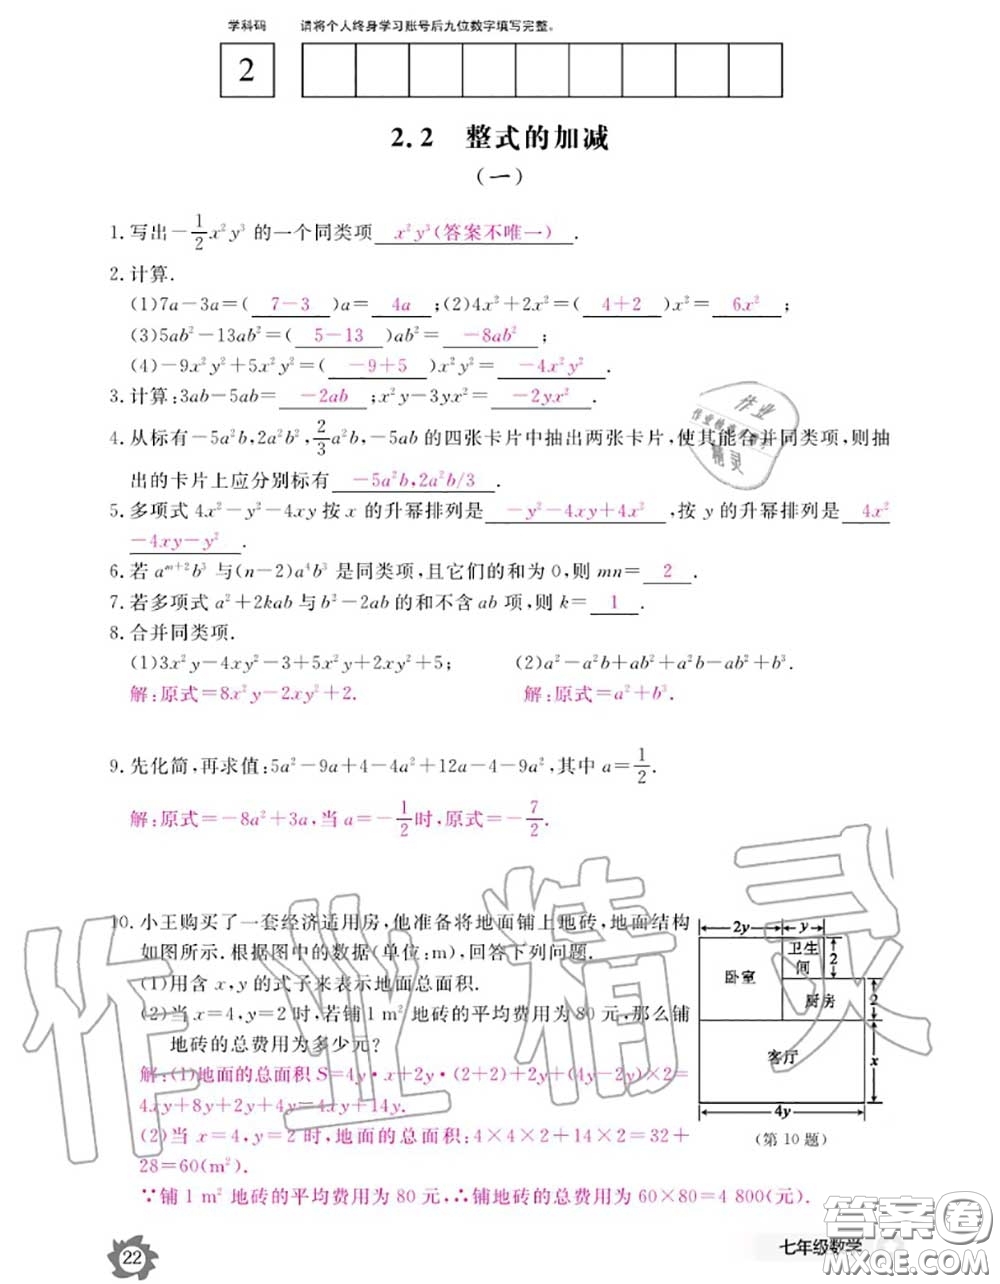 学科码 请将个人终身学习账号后九位数字填写完整。
2
2.2 整式的加减
(一)
1.写出-\frac{1}{2}x²y³的一个同类项 x²y³(答案不唯一) .
2.计算.
(1)7a-3a=( 7-3 )a= 4a ;(2)4x²+2x²=( 4+2 )x²= 6x² ;
(3)5ab²-13ab²=( 5-13 )ab²= -8ab² ;
(4)-9x²y²+5x²y²=( -9+5 )x²y²= -4x²y² .
3.计算:3ab-5ab= -2ab ;x²y-3yx²= -2yx² .
4.从标有-5a²b,2a²b²,\frac{2}{3}a²b,-5ab的四张卡片中抽出两张卡片,使其能合并同类项,则抽
出的卡片上应分别标有 -5a²b,2a²b/3 .
5.多项式4x²-y²-4xy按x的升幂排列是 -y²-4xy+4x² ,按y的升幂排列是 4x²
-4xy-y² .
6.若aᵐ⁺²b³与(n-2)a⁴b³是同类项,且它们的和为0,则mn= 2 .
7.若多项式a²+2kab与b²-2ab的和不含ab项,则k= 1 .
8.合并同类项.
(1)3x²y-4xy²-3+5x²y+2xy²+5; (2)a²-a²b+ab²+a²b-ab²+b³.
解:原式=8x²y-2xy²+2. 解:原式=a²+b³.
9.先化简,再求值:5a²-9a+4-4a²+12a-4-9a²,其中a=\frac{1}{2}.
解:原式=-8a²+3a,当a=-\frac{1}{2}时,原式=-\frac{7}{2}.
10.小王购买了一套经济适用房,他准备将地面铺上地砖,地面结构
如图所示.根据图中的数据(单位:m),回答下列问题.
(1)用含x,y的式子来表示地面总面积.
(2)当x=4,y=2时,若铺1 m²地砖的平均费用为80元,那么铺
地砖的总费用为多少元?
解:(1)地面的总面积S=4y·x+2y·(2+2)+2y+(4y-2y)×2=
4xy+8y+2y+4y=4xy+14y.
(2)当x=4,y=2时,地面的总面积:4×4×2+14×2=32+
28=60(m²).
∵铺1 m²地砖的平均费用为80元,∴铺地砖的总费用为60×80=4 800(元).
2y y
卫生
间 2
卧室
厨房 2
客厅 x
4y
(第10题)
作业
精灵
作业精灵
22
七年级数学
答案圈
MXQE.COM